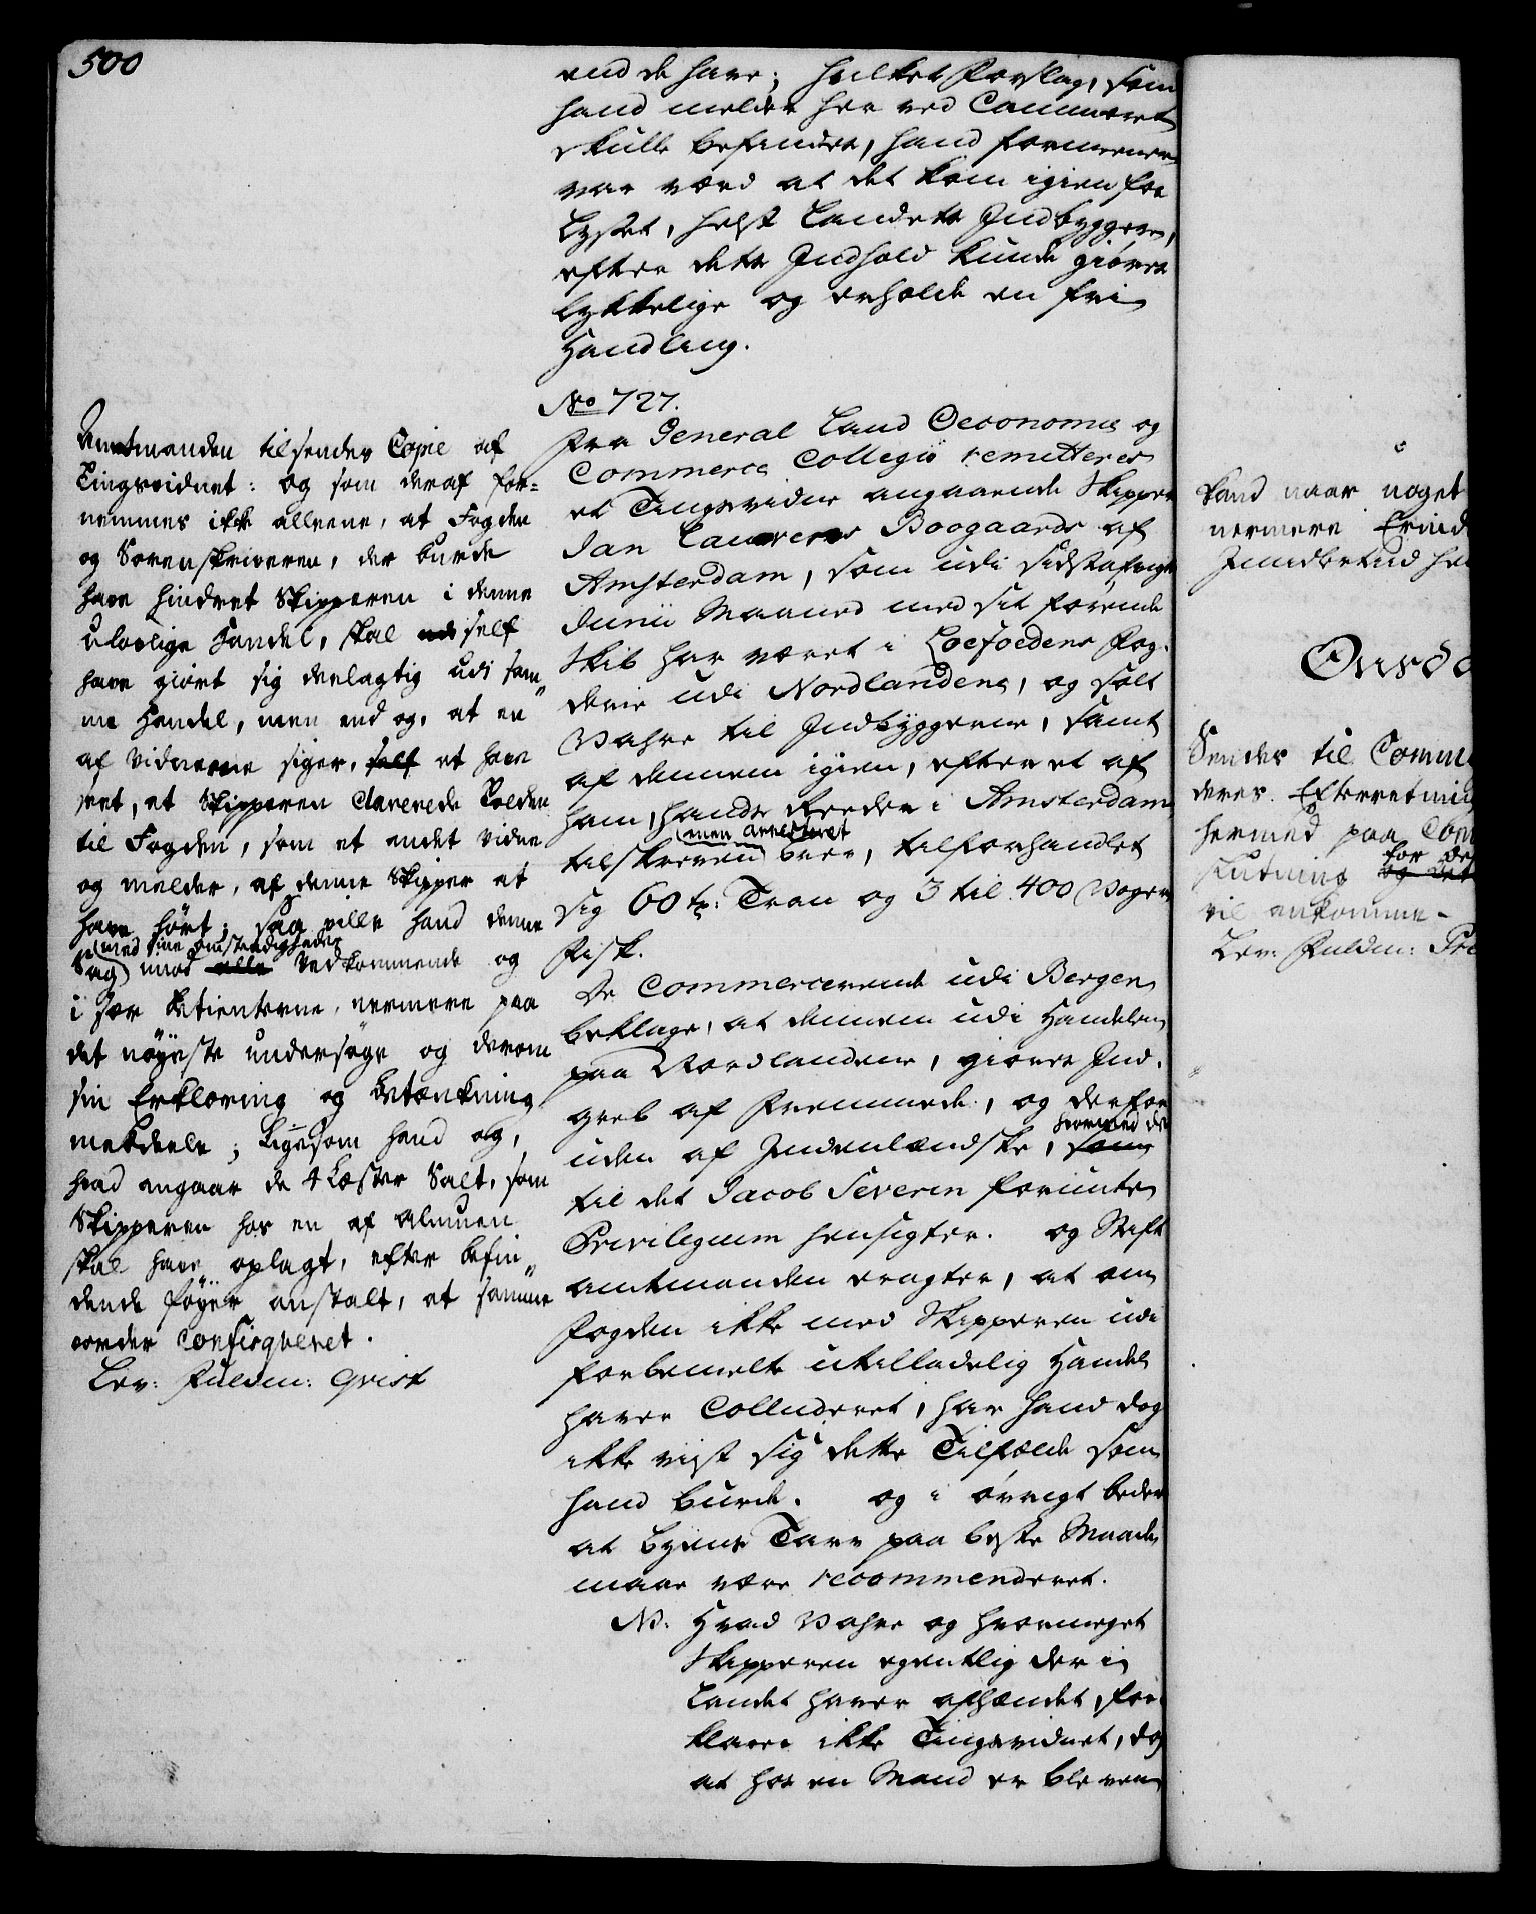 500
end de have; hvilket Forslag, som
hand melder her ved Cammeret
skulle befindes, hand formener
var værd at det kom igien for
Lyset, helst Landets Indbyggere,
efter dets Indhold kunde giøres
lykkelige og erholde en fri
Handling.
No 727.
Fra General Land Oeconomie og
Commerce Collegio remitteres
et Tingsvidne angaaende Skipper
Jan Laurens Boogaards af
Amsterdam, som udi sidstafvigte
Junii Maaned med sit førende
Skib har været i Loefoedens Fog-
derie udi Nordlandene, og solt
Vahre til Indbyggerne, samt
af dennem igien, efter et af
ham, hands Reeder i Amsterdam
tilskreven (men arresteret) brev, tilforhandlet
sig 60 tr: Tran og 3 til 400 Voger
Fisk.
De Commercerende udi Bergen
beklage, at dennem udi Handelen
paa Nordlandene, giøres Ind-
greb af Fremmede, og desfor
uden af Indenlændske, som hvormed de
til det Jacob Severin forundte
Privilegium hensigter. og Stift
amtmanden eragter, at om
Fogden ikke med Skipperen udi
forbemelte utilladelig Handel
haver Colluderet, har hand dog
ikke vist sig i dette Tilfælde som
hand burde. og i øvrigt beder
at byens Tarv paa beste Maade
maae være recommenderet.
NB. Hvad Vahre og hvormeget
Skipperen egentlig der i
Landet haver afhændet, for-
klarer ikke Tingsvidnet, dog
at hos en Mand er bleven
Amtmanden tilsendes Copie af
Tingsvidnet: og som deraf for=
nemmes ikke alleene, at Fogden
og Sorenskriveren, der burde
have hindret Skipperen i denne
ulovlige Handel, skal self
have giort sig deelagtig udi sam"
me Handel, men end og, at en
af Vidnerne siger, self at have
seet, at Skipperen Clarerede Tolden
til Fogden, som et andet vidne
og melder, af denne Skipper at
have hørt; saa ville hand denne
Sag (med sine omstændigheder) imod alle Vedkommende og
i sær betienterne, nermere paa
det nøyeste undersøge og derom
sin Erklæring og betænkning
meddeele; ligesom hand og,
hvad angaar de 4 Læster Salt, som
Skipperen hos en af Almuen
skal have oplagt, efter befin"
dende føyer anstalt, at samme
vorder Confisqveret.
Lev: Fuldm: Qvist
kand naar noget
nermere Erind
Imidlertid
Onsda
Sendes til Comm
deres Efterretning
hermed paa Com
slutning og det for de
vil ankomme-
Lev: Fuldm: